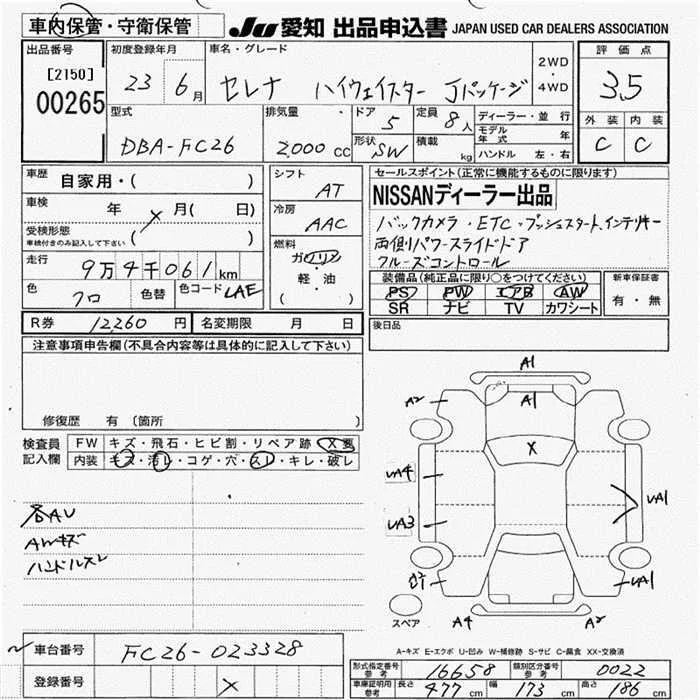 車内保管・守衛保管
JU 愛知 出品申込書 JAPAN USED CAR DEALERS ASSOCIATION
出品番号
[2150]
00265
初度登録年月
23 6月
車名・グレード
セレナ ハイウェイスター Jパッケージ
2WD
・
4WD
評価点
3.5
外装 内装
C C
型式
DBA-FC26
排気量
2,000 CC
ドア
5
定員
8人
形状
SW
積載
kg
ディーラー・並行
モデル年式 年
ハンドル 左・右
車歴
自家用・( )
車検
年 X 月( 日)
受検形態
車検付きのみ記入して下さい
( )
走行
9万4千061km
色
クロ
色替
色コード LAE
シフト
AT
冷房
AAC
燃料
ガソリン
軽・油
( )
セールスポイント(正常に機能するものに限ります)
NISSANディーラー出品
バックカメラ・ETC・プッシュスタート、インテリキー
両側パワースライドドア
クルーズコントロール
装備品(純正品に限り○をつけてください)
PS PW エアB AW
SR ナビ TV カワシート
新車保証書
有・無
後日品
R券 12,260円 名変期限 月 日
注意事項申告欄(不具合内容等は具体的に記入して下さい)
修復歴 有〔箇所 〕
検査員記入欄
FW キズ・飛石・ヒビ割・リペア跡
内装 キズ・汚レ・コゲ・穴・スレ・キレ・破レ
各AU
AWキズ
ハンドルスレ
A1
A2
A1
X
UA4
UA1
UA3
UA1
スペア
A4
A2
A-キズ E-エクボ U-凹み W-補修跡 S-サビ C-腐食 XX-交換済
車台番号 FC26-023328
登録番号 X
型式指定番号 参考 16658
類別区分番号 参考 0022
車庫証明用 参考 長さ 477cm 幅 173cm 高さ 186cm